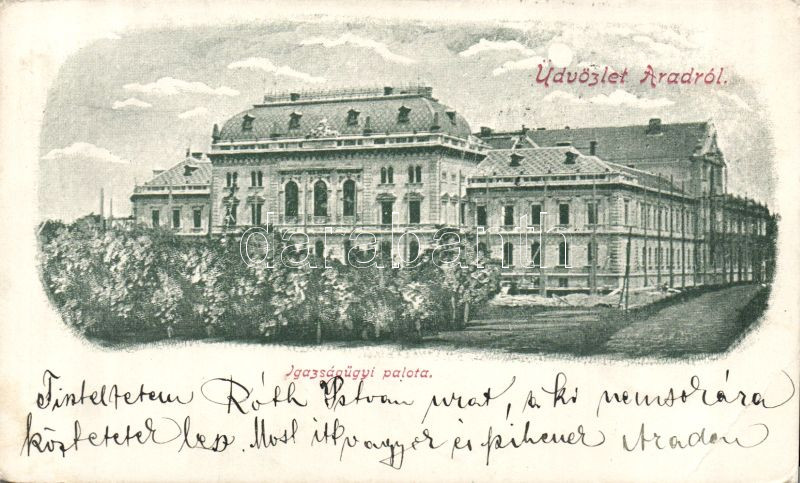 Üdvözlet Aradról.
darabanth
Igazságügyi palota.
Tisteltetem Róth Istvan urat, a ki nemsokára
köztetek lesz. Most itt vagyok és pihenek Aradon